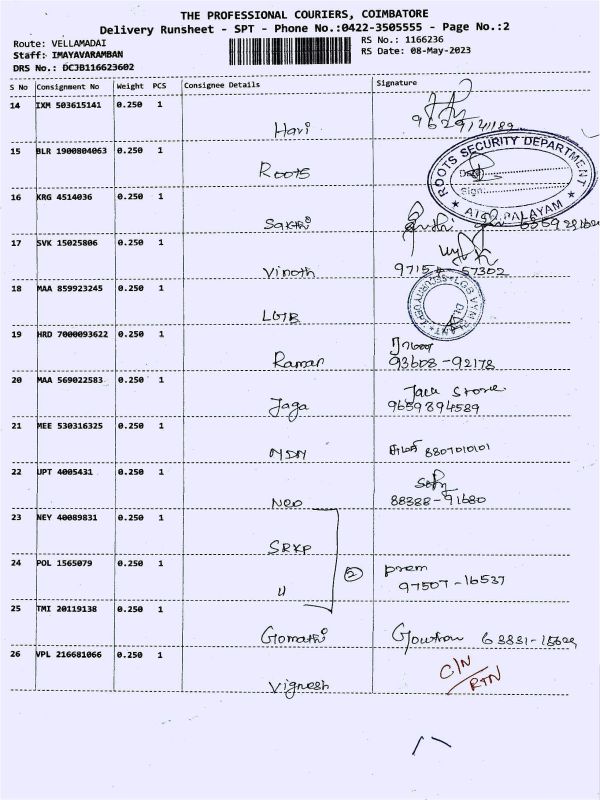 THE PROFESSIONAL COURIERS, COIMBATORE
Delivery Runsheet - SPT - Phone No.:0422-3505555 - Page No.:2
Route: VELLAMADAI
Staff: IMAYAVARAMBAN
DRS No.: DCJB116623602
RS No.: 1166236
RS Date: 08-May-2023
S No Consignment No Weight PCS Consignee Details Signature
14 IXM 503615141 0.250 1 Hari
15 BLR 1900804063 0.250 1 Roots
ROOTS SECURITY DEPARTMENT
Date
Sign
16 KRG 4514036 0.250 1 Sakthi
17 SVK 15025806 0.250 1 Vinoth 57302
18 MAA 859923245 0.250 1 LGB
19 HRD 7000093622 0.250 1 Raman
93608-92178
20 MAA 569022583 0.250 1 Jaga Jack Store
9659894589
21 MEE 530316325 0.250 1 MDN 8807010101
22 UPT 4005431 0.250 1 Neo
88388-91680
23 NEY 40089831 0.250 1 SRKP
24 POL 1565079 0.250 1 11 2 prem
97507-16537
25 TMI 20119138 0.250 1 Gomathi Gowtham
26 VPL 216681066 0.250 1 Vignesh C/N
RTN